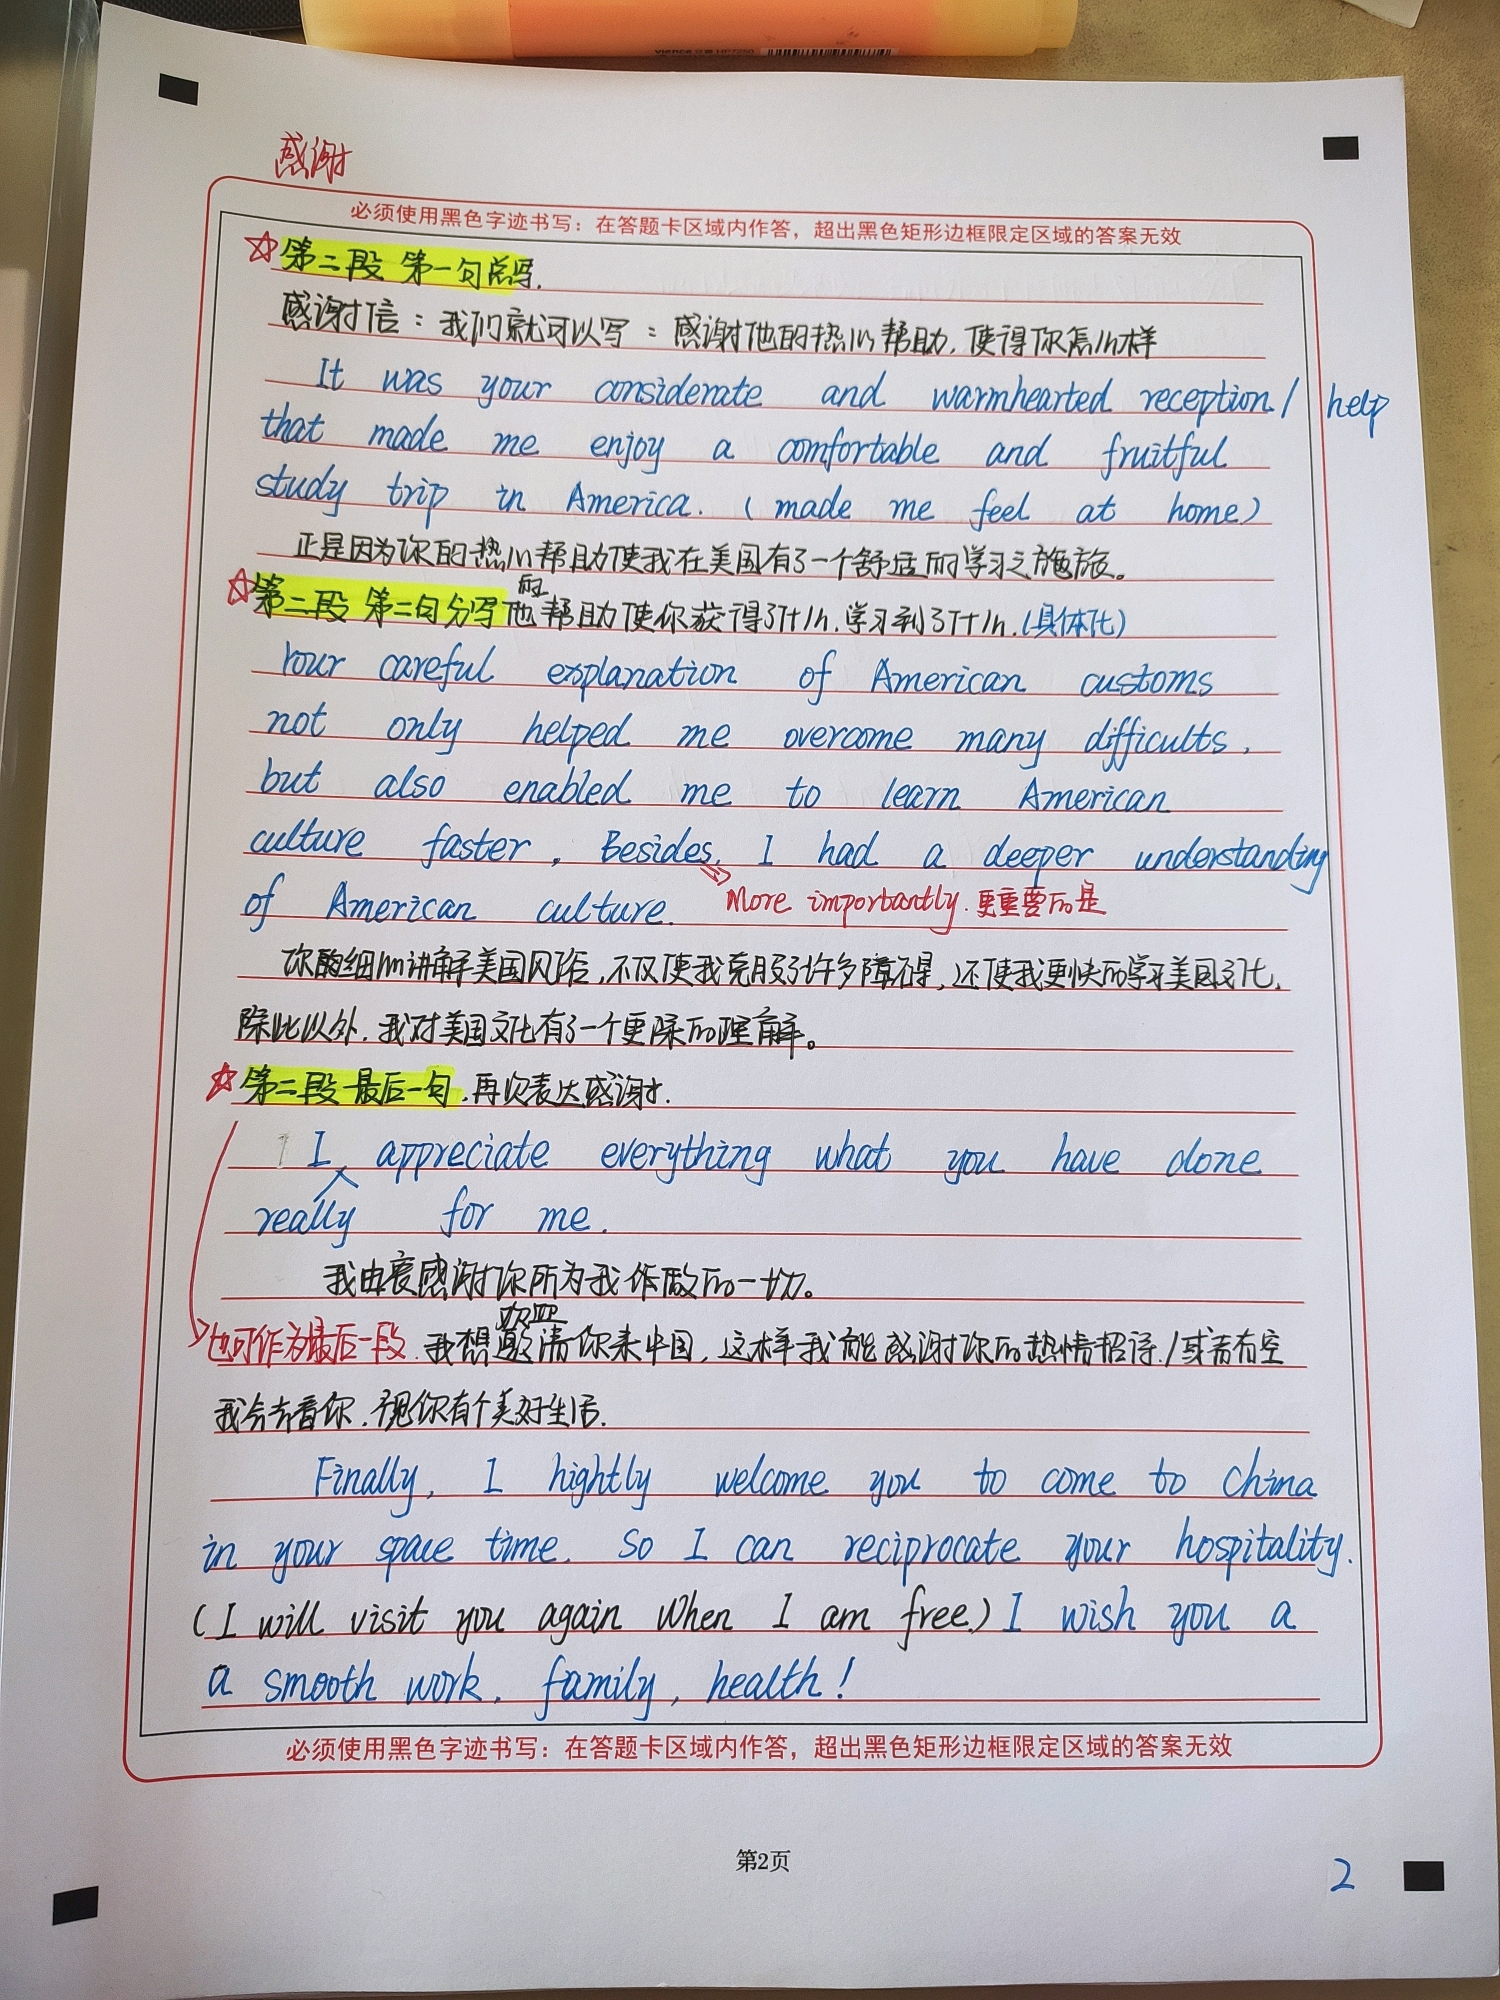 感谢
必须使用黑色字迹书写：在答题卡区域内作答，超出黑色矩形边框限定区域的答案无效
☆第二段 第一句总写.
感谢信：我们就可以写：感谢他的热心帮助，使得你怎么样
It was your considerate and warmhearted reception./ help
that made me enjoy a comfortable and fruitful
study trip in America. (made me feel at home)
正是因为你的热心帮助使我在美国有了一个舒适的学习之旅。
☆第二段 第二句分写他的帮助使你获得了什么，学习到了什么.(具体化)
Your careful explanation of American customs
not only helped me overcome many difficults,
but also enabled me to learn American
culture faster. Besides, I had a deeper understanding
of American culture. More importantly. 更重要的是
你的细心讲解美国风俗，不仅使我克服了许多障碍，还使我更快的学习美国文化，
除此以外，我对美国文化有了一个更深的理解。
☆第二段 最后一句，再次表达感谢.
I appreciate everything what you have done
really for me.
我由衷感谢你所为我作做的一切。
也可作为最后一段. 我想邀请你来中国，这样我能感谢你的热情招待./或者有空
欢迎
我会去看你，祝你有个美好生活.
Finally, I hightly welcome you to come to China
in your space time. So I can reciprocate your hospitality.
(I will visit you again when I am free.) I wish you a
a smooth work, family, health!
必须使用黑色字迹书写：在答题卡区域内作答，超出黑色矩形边框限定区域的答案无效
第2页
2